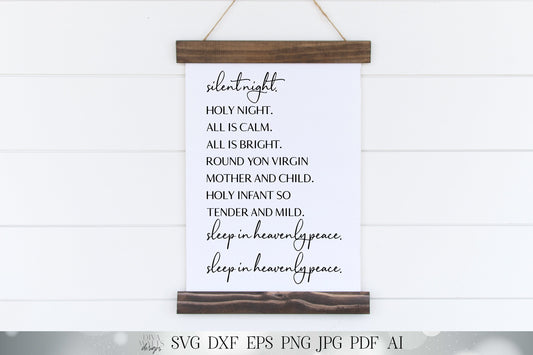 silent night.
HOLY NIGHT.
ALL IS CALM.
ALL IS BRIGHT.
ROUND YON VIRGIN
MOTHER AND CHILD.
HOLY INFANT SO
TENDER AND MILD.
sleep in heavenly peace.
sleep in heavenly peace.
SVG DXF EPS PNG JPG PDF AI